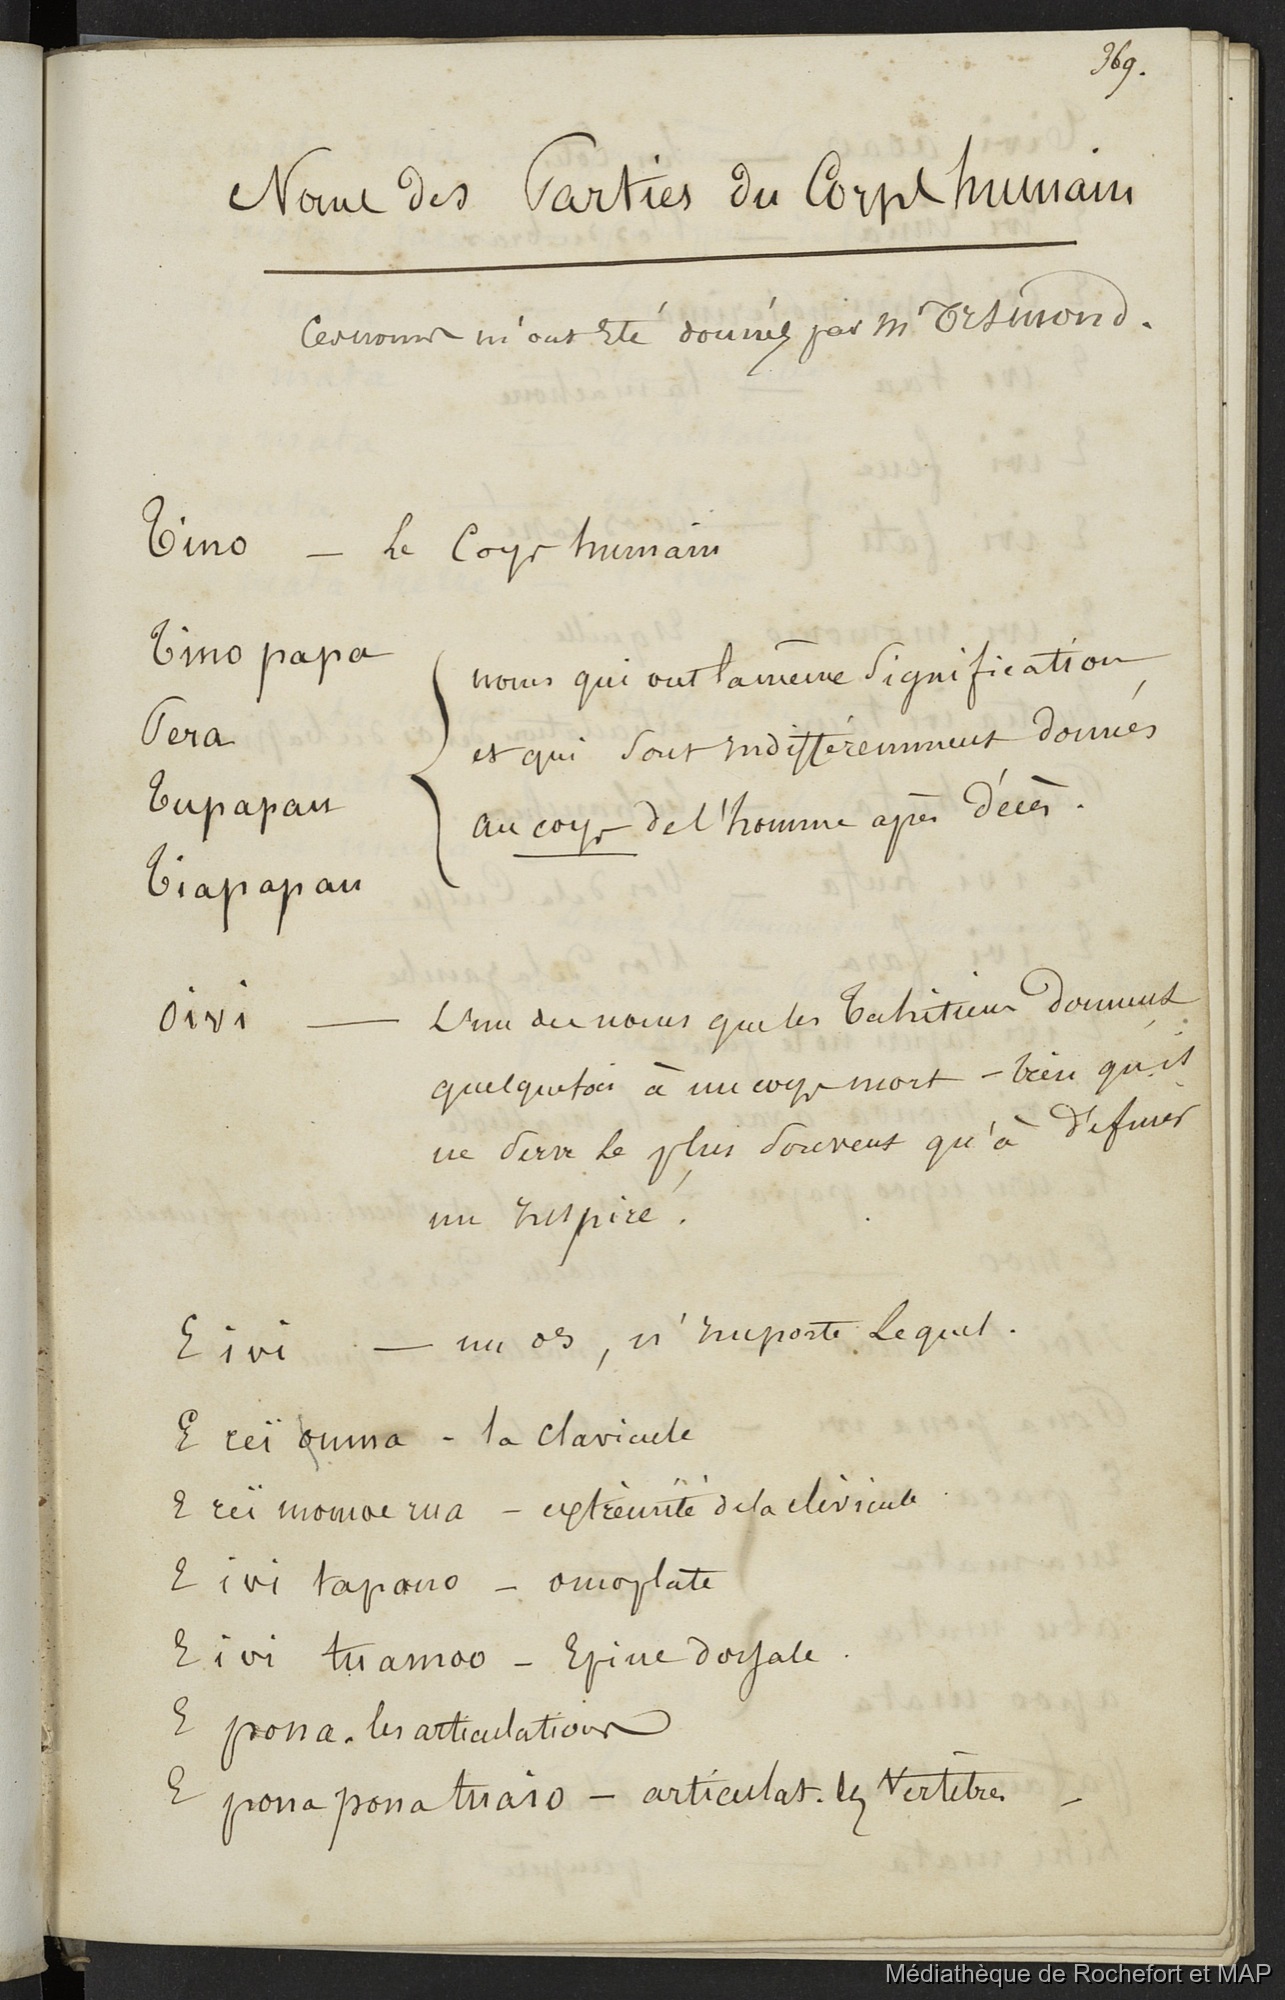 369.
Noms des Parties du Corps humain
Ces noms m'ont été donnés par Mr Desmond.
Tino — le Corps humain
Tino papa
Tera
Tupapau
Tiapapau
noms qui ont la même signification
et qui sont indifféremment donnés
au corps de l'homme après décès.
Oivi — L'un des noms que les Tahitiens donnent
quelquefois à un corps mort – bien qu'il
ne serve le plus souvent qu'à définir
un inspiré.
E ivi — un os, n'importe lequel.
E reï ouma - la clavicule
E reï momoe rua – extrémité de la clavicule
E ivi tapono – omoplate
E ivi tuamoo – Epine dorsale.
E pona. les articulations
E pona pona tuaio – articulat. des Vertèbres –
Médiathèque de Rochefort et MAP